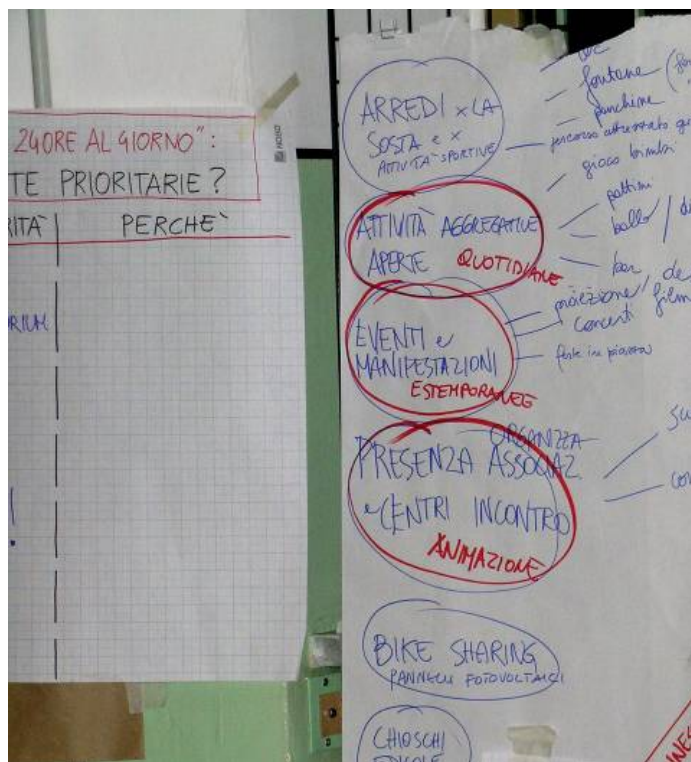 24ORE AL GIORNO":
TE PRIORITARIE?
RITÀ
PERCHÈ
NOBO
ARREDI x LA
SOSTA e x
ATTIVITÀ SPORTIVE
fontane
panchine
percorso attrezzato
gioco bimbi
ATTIVITÀ AGGREGATIVE
APERTE QUOTIDIANE
pattini
ballo /
bar
EVENTI e
MANIFESTAZIONI
ESTEMPORANEE
proiezione /
concerti film
feste in piazza
ORGANIZZA
PRESENZA ASSOCIAZ.
e CENTRI INCONTRO
ANIMAZIONE
BIKE SHARING
PANNELLI FOTOVOLTAICI
CHIOSCHI
EDICOLE